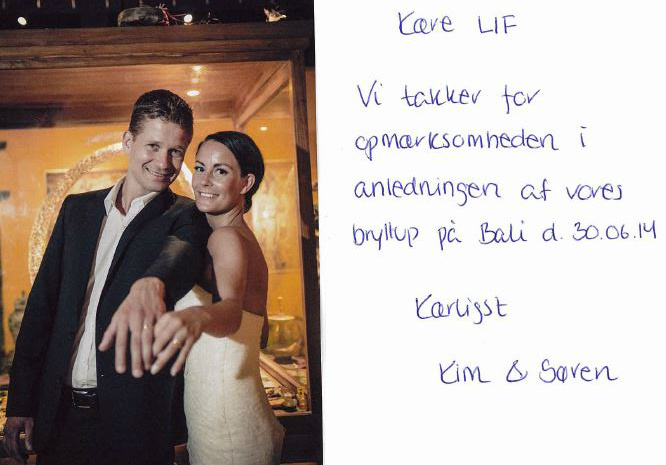 Kære LIF
Vi takker for
opmærksomheden i
anledningen af vores
bryllup på Bali d. 30.06.14
Kærligst
Kim & Søren